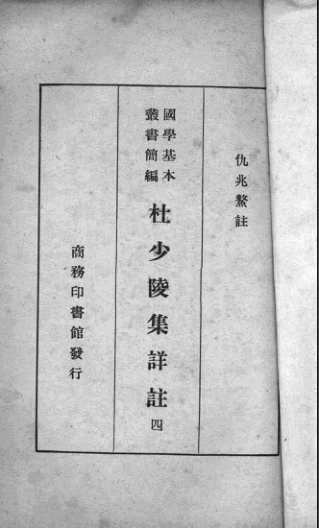 仇兆鰲註
國學基本
叢書簡編
杜少陵集詳註 四
商務印書館發行